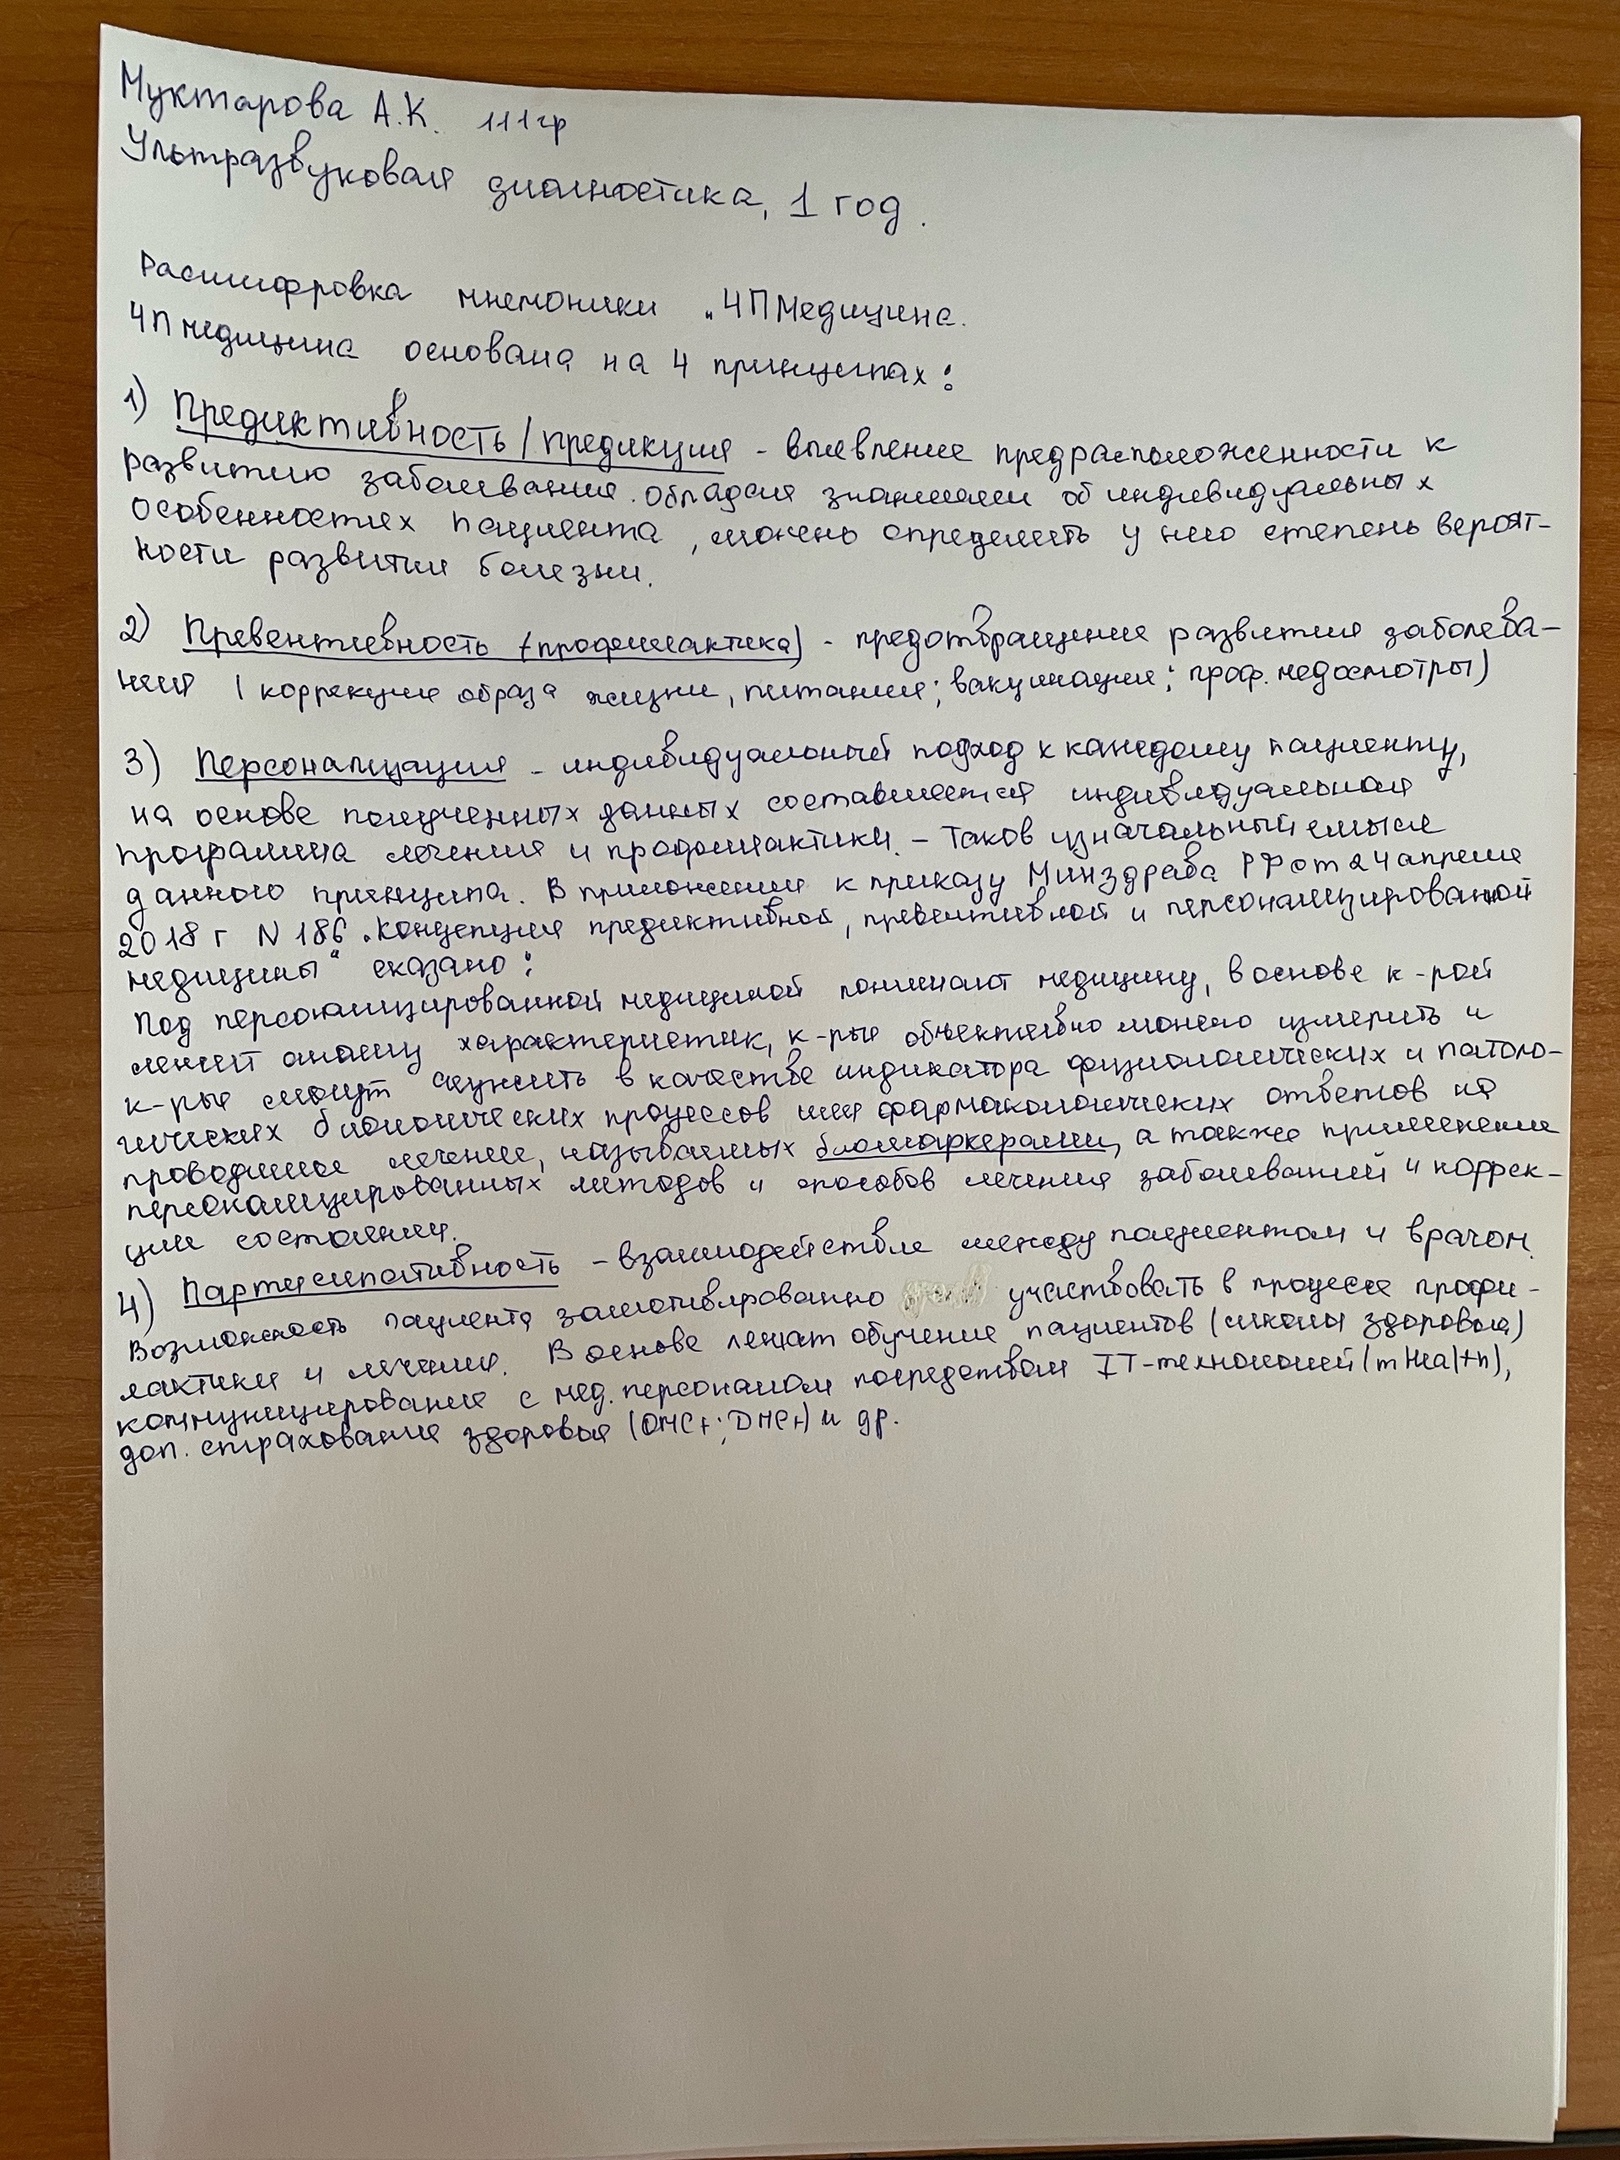 Муктарова А.К. 111гр
Ультразвуковая диагностика, 1 год.
Расшифровка мнемоники „4ПМедицина.
4П медицина основана на 4 принципах:
1) Предиктивность/предикция - выявление предрасположенности к
развитию заболевания. Обладая знаниями об индивидуальных
особенностях пациента, можно определить у него степень вероят-
ности развития болезни.
2) Превентивность (профилактика) - предотвращение развития заболева-
ний (коррекция образа жизни, питания; вакцинация; проф. медосмотры)
3) Персонализация - индивидуальный подход к каждому пациенту,
на основе полученных данных составляется индивидуальная
программа лечения и профилактики. - Таков изначальный смысл
данного принципа. В приложении к приказу Минздрава РФ от 24 апреля
2018 г N 186 „Концепция предиктивной, превентивной и персонализированной
медицины“ сказано:
Под персонализированной медициной понимают медицину, в основе к-рой
лежит анализ характеристик, к-рые объективно можно измерить и
к-рые могут служить в качестве индикатора физиологических и патоло-
гических биологических процессов или фармакологических ответов на
проводимое лечение, называемых биомаркерами, а также применение
персонализированных методов и способов лечения заболеваний и коррек-
ции состояния.
4) Партисипативность - взаимодействие между пациентом и врачом.
Возможность пациента замотивированно участвовать в процессе профи-
лактики и лечения. В основе лежат обучение пациентов (школы здоровья)
коммуницирование с мед. персоналом посредством IT-технологий (mHealth),
доп. страхование здоровья (ОМС+; ДМС+) и др.